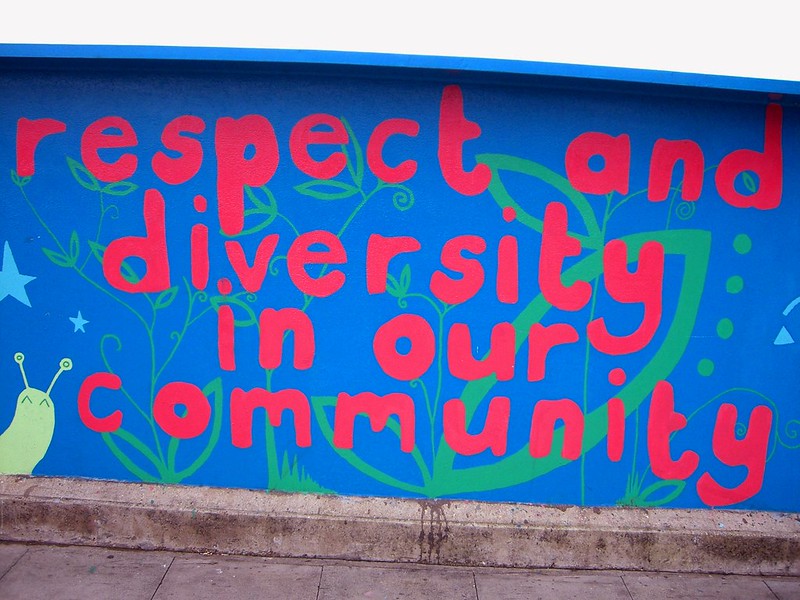 respect and
diversity
in our
community